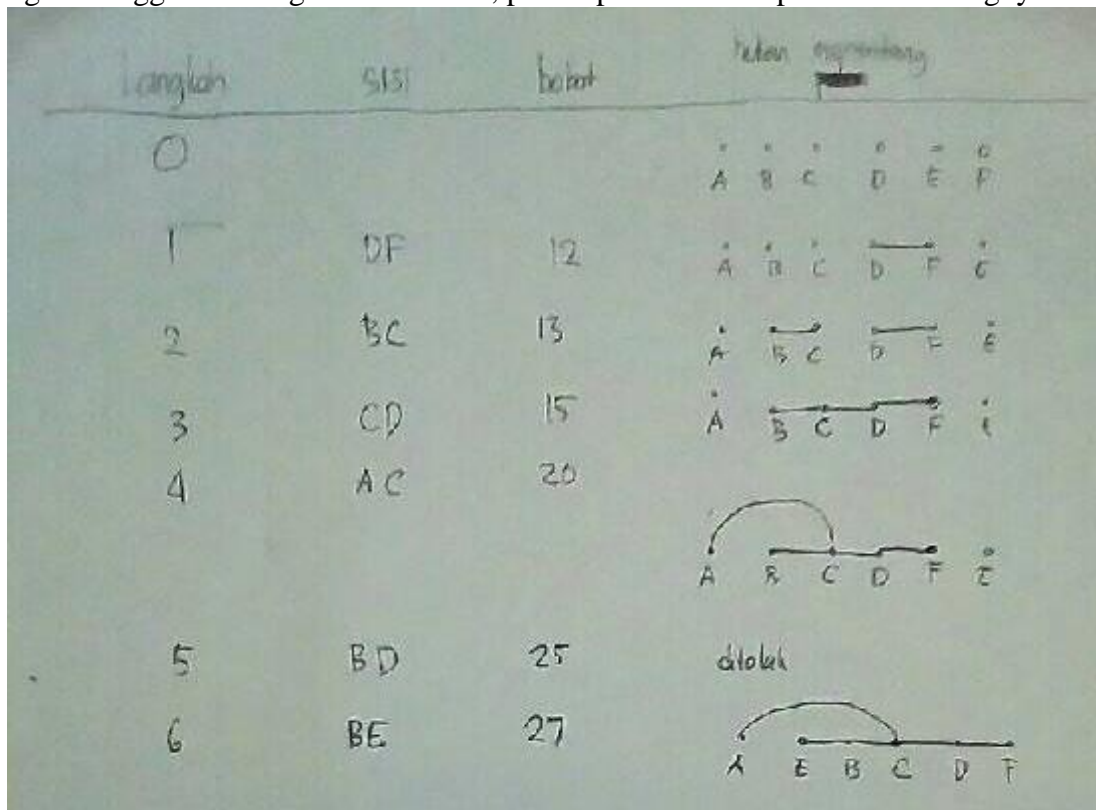 Langkah sisi bobot hutan merentang
0
A B C D E F
1 DF 12
A B C D F E
2 BC 13
A B C D F E
3 CD 15
A B C D F E
4 AC 20
A B C D F E
5 BD 25 ditolak
6 BE 27
A E B C D F